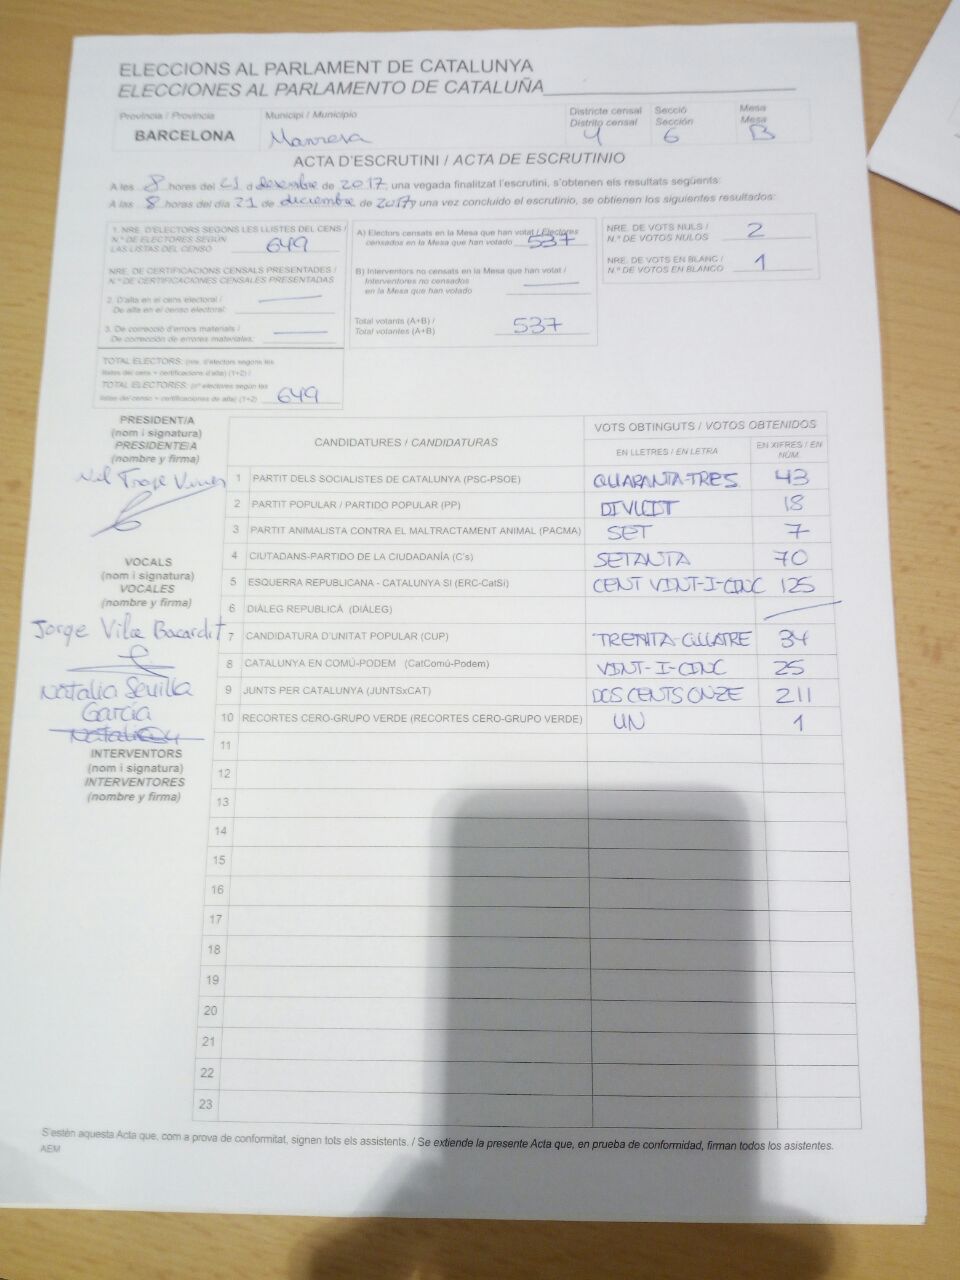 ELECCIONS AL PARLAMENT DE CATALUNYA
ELECCIONES AL PARLAMENTO DE CATALUÑA
Província / Provincia
BARCELONA
Municipi / Municipio
Manresa
Districte censal
Distrito censal
4
Secció
Sección
6
Mesa
Mesa
B
ACTA D'ESCRUTINI / ACTA DE ESCRUTINIO
A les 8 hores del 21 d desembre de 2017, una vegada finalitzat l'escrutini, s'obtenen els resultats següents:
A las 8 horas del día 21 de diciembre de 2017 y una vez concluido el escrutinio, se obtienen los siguientes resultados:
1. NRE. D'ELECTORS SEGONS LES LLISTES DEL CENS /
N.º DE ELECTORES SEGÚN
LAS LISTAS DEL CENSO 649
NRE. DE CERTIFICACIONS CENSALS PRESENTADES /
N.º DE CERTIFICACIONES CENSALES PRESENTADAS
2. D'alta en el cens electoral /
De alta en el censo electoral:
3. De correcció d'errors materials /
De corrección de errores materiales:
TOTAL ELECTORS: (nre. d'electors segons les
llistes del cens + certificacions d'alta) (1+2) /
TOTAL ELECTORES: (nº electores según las
listas del censo + certificaciones de alta) (1+2) 649
A) Electors censats en la Mesa que han votat / Electores
censados en la Mesa que han votado 537
B) Interventors no censats en la Mesa que han votat /
Interventores no censados
en la Mesa que han votado
Total votants (A+B) /
Total votantes (A+B) 537
NRE. DE VOTS NULS /
N.º DE VOTOS NULOS 2
NRE. DE VOTS EN BLANC /
N.º DE VOTOS EN BLANCO 1
PRESIDENT/A
(nom i signatura)
PRESIDENTE/A
(nombre y firma)
VOCALS
(nom i signatura)
VOCALES
(nombre y firma)
Jorge Vila Bacardit
Natalia Sevilla
García
INTERVENTORS
(nom i signatura)
INTERVENTORES
(nombre y firma)
CANDIDATURES / CANDIDATURAS
VOTS OBTINGUTS / VOTOS OBTENIDOS
EN LLETRES / EN LETRA
EN XIFRES / EN
NÚM.
1 PARTIT DELS SOCIALISTES DE CATALUNYA (PSC-PSOE) QUARANTA-TRES 43
2 PARTIT POPULAR / PARTIDO POPULAR (PP) DIVUIT 18
3 PARTIT ANIMALISTA CONTRA EL MALTRACTAMENT ANIMAL (PACMA) SET 7
4 CIUTADANS-PARTIDO DE LA CIUDADANÍA (C's) SETANTA 70
5 ESQUERRA REPUBLICANA - CATALUNYA SÍ (ERC-CatSí) CENT VINT-I-CINC 125
6 DIÀLEG REPUBLICÀ (DIÀLEG)
7 CANDIDATURA D'UNITAT POPULAR (CUP) TRENTA-QUATRE 34
8 CATALUNYA EN COMÚ-PODEM (CatComú-Podem) VINT-I-CINC 25
9 JUNTS PER CATALUNYA (JUNTSxCAT) DOS CENTS ONZE 211
10 RECORTES CERO-GRUPO VERDE (RECORTES CERO-GRUPO VERDE) UN 1
11
12
13
14
15
16
17
18
19
20
21
22
23
S'estén aquesta Acta que, com a prova de conformitat, signen tots els assistents. / Se extiende la presente Acta que, en prueba de conformidad, firman todos los asistentes.
AEM